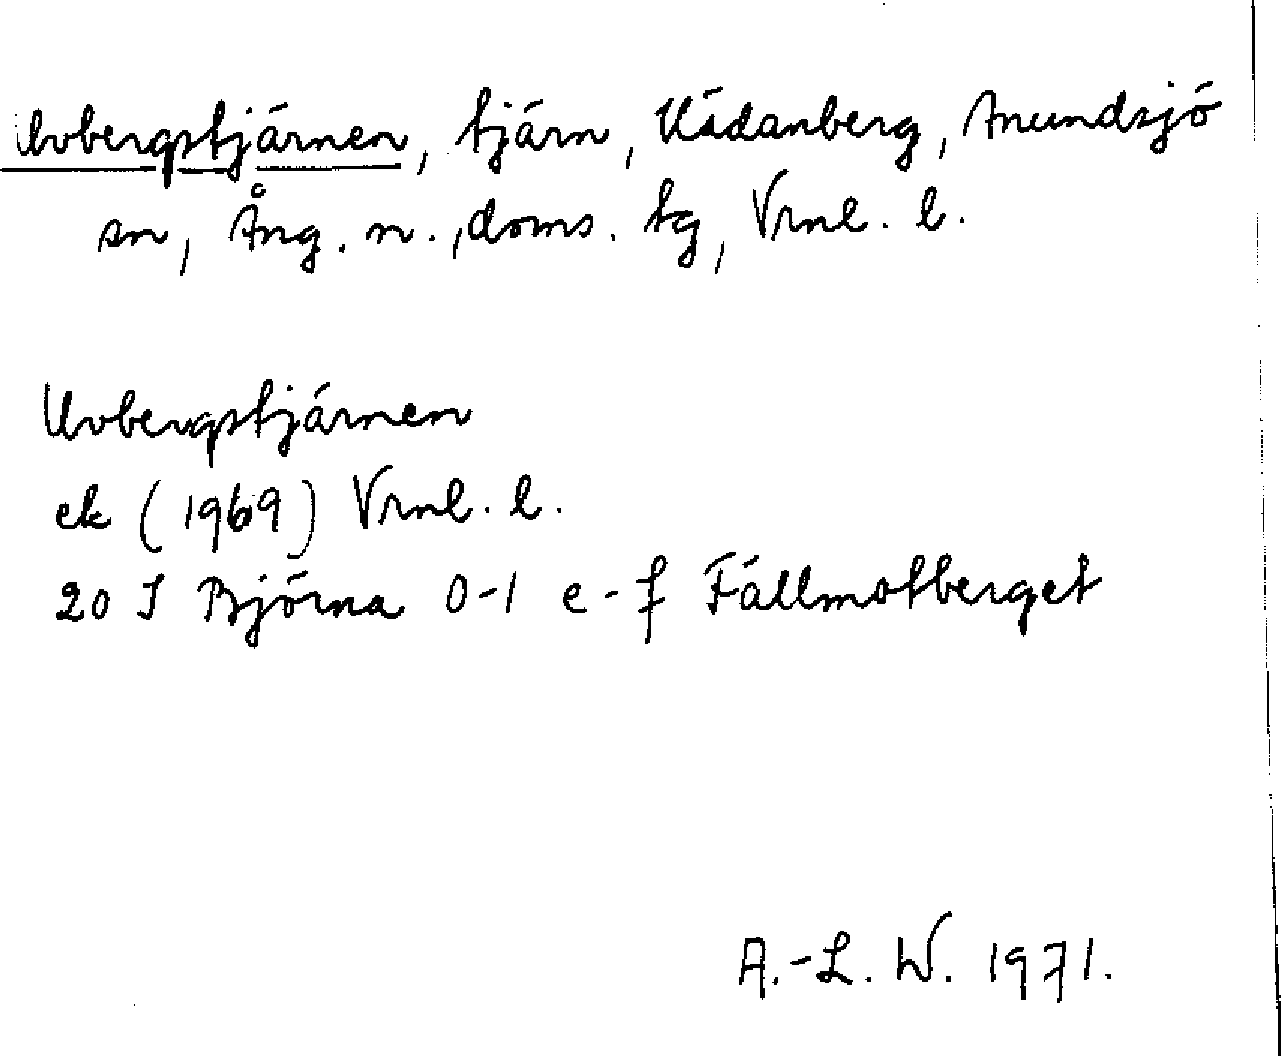 Uvbergstjärnen, tjärn, Kädanberg, Anundsjö
sn, Ång. n., doms. tg, Vrml. l.
Uvbergstjärnen
ek (1969) Vrml. l.
20 J Björna 0-1 e-f Fällmotberget
A.-L. W. 1971.